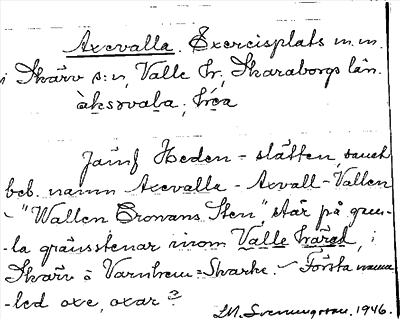 Axevalla. Exercisplats m.m.
i Skärv s:n, Valle hd, Skaraborgs län.
àksəvala,
Jämf Heden - slätten, samt
beb. namn Axevalla - Axvall - Vallen
- "Wallen Cronans Sten", står på gam-
-la gränsstenar inom Valle härad, i
Skärv o Varnhem - Skarke. - Första namn-
-led oxe, oxar?
1946.